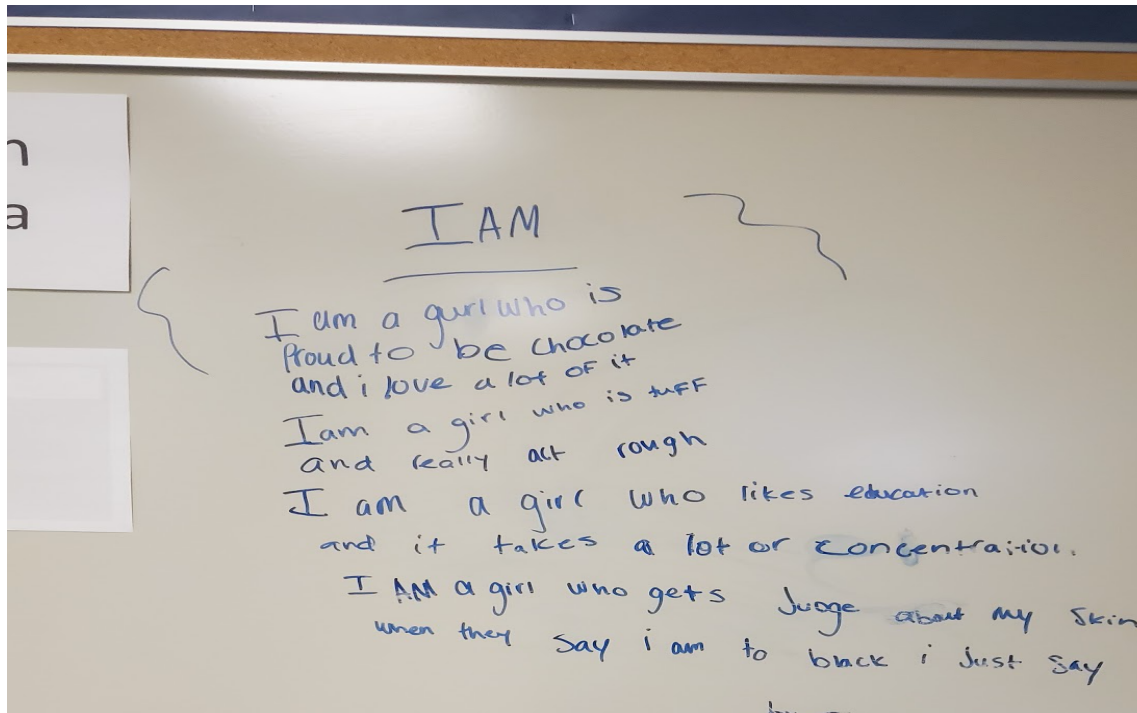 n
a
I AM
I am a gurl who is
Proud to be chocolate
and i love a lot of it
I am a girl who is tuff
and really act rough
I am a girl who likes education
and it takes a lot or concentraition.
I AM a girl who gets Judge about my skin
when they say i am to black i just say